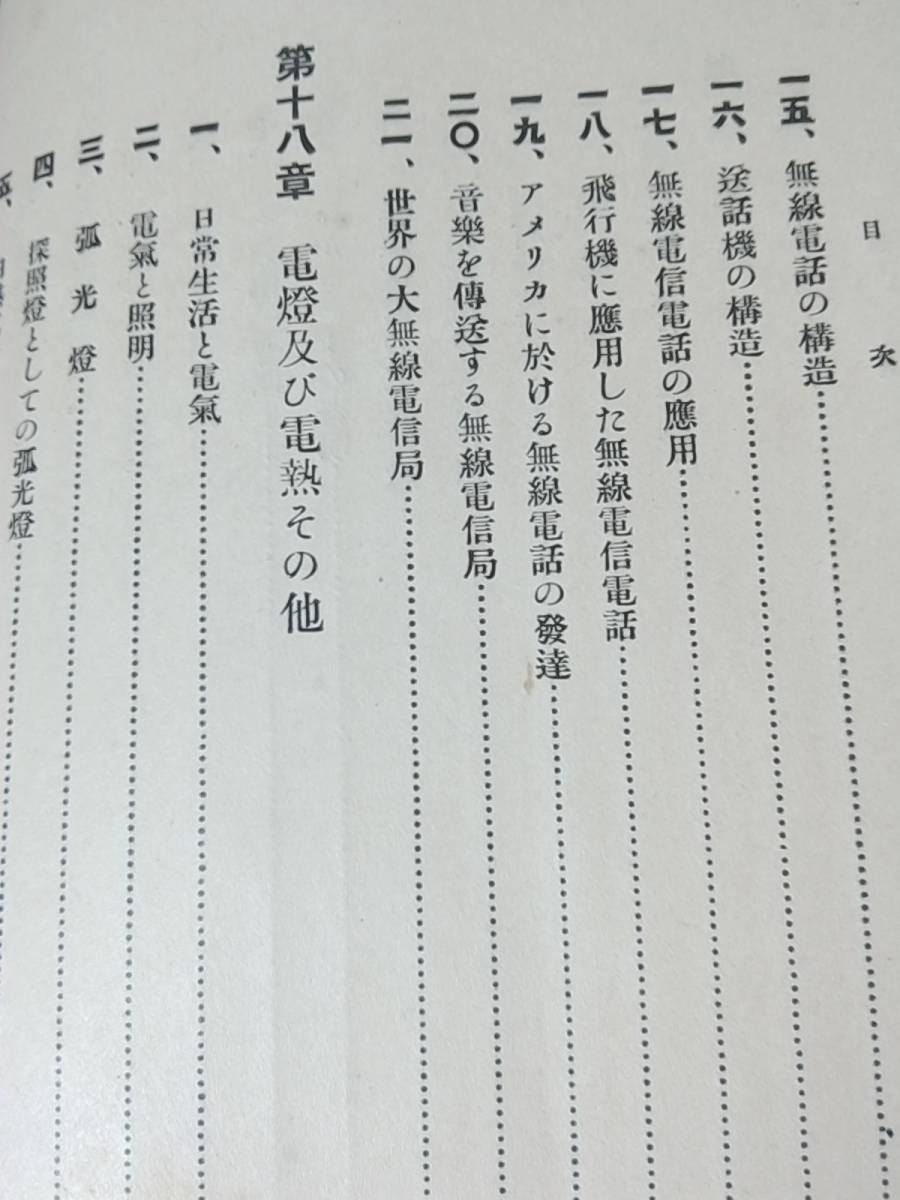 目次
一五、無線電話の構造
一六、送話機の構造
一七、無線電信電話の應用
一八、飛行機に應用した無線電信電話
一九、アメリカに於ける無線電話の發達
二〇、音樂を傳送する無線電信局
二一、世界の大無線電信局
第十八章 電燈及び電熱その他
一、日常生活と電氣
二、電氣と照明
三、弧光燈
四、探照燈としての弧光燈
五、